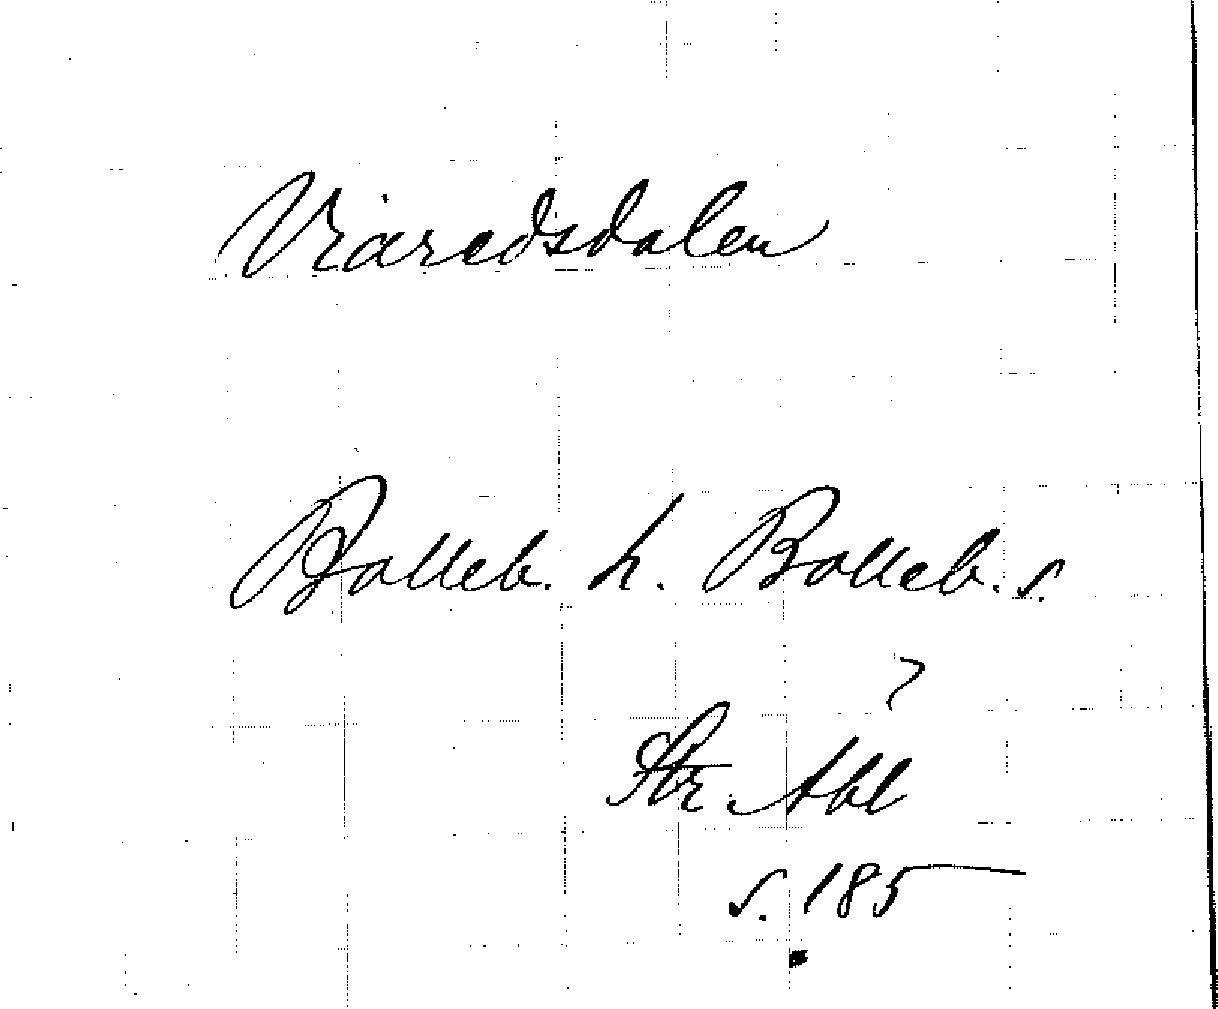 Viaredsdalen
Bolleb. h. Bolleb. s.
?
Str. Abl
s. 185